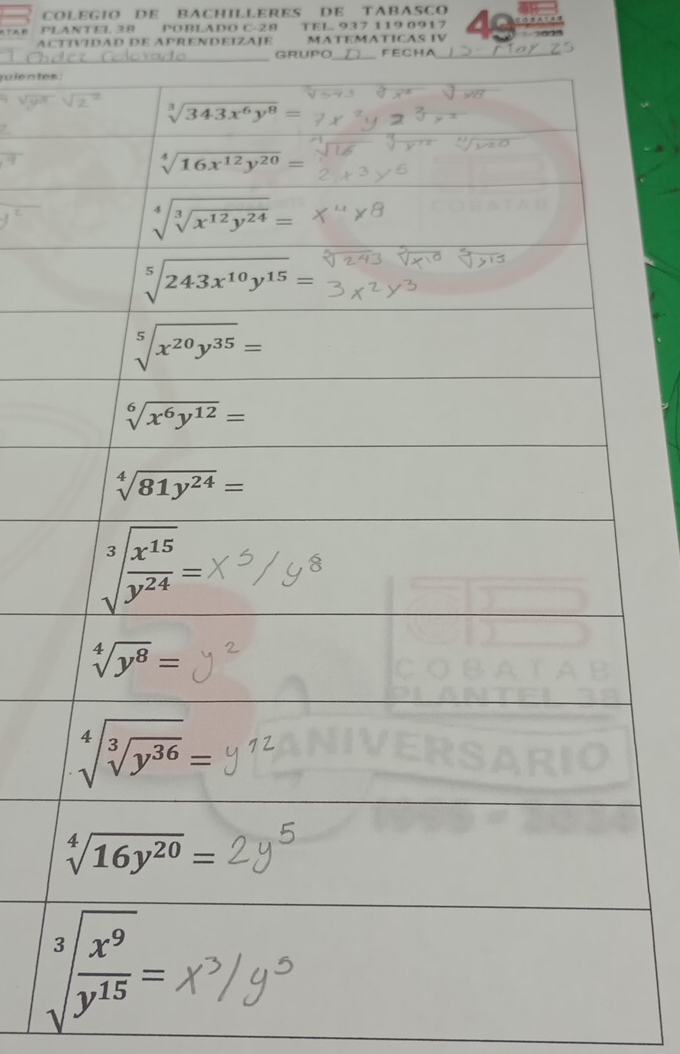 COLEGIO DE BACHILLERES DE TABASCO
PLANTEL 38 POBLADO C-28 TEL. 937 119 0917
ACTIVIDAD DE APRENDEIZAJE MATEMATICAS IV
GRUPO D FECHA 13- May 25
quientes:
∛343 ∛x⁶ ∛y8
∛(343x⁶y⁸) = 7x²y²∛y²
⁴√16 ⁴√x¹² ⁴√y20
⁴√(16x¹²y²⁰) = 2x³y⁵
⁴√(∛(x¹²y²⁴)) = x⁴y8
⁵√243 ⁵√x10 ⁵√y15
⁵√(243x¹⁰y¹⁵) = 3x²y³
⁵√(x²⁰y³⁵) =
⁶√(x⁶y¹²) =
⁴√(81y²⁴) =
∛(x¹⁵/y²⁴) = x⁵/y⁸
⁴√(y⁸) = y²
⁴√(∛(y³⁶)) = y¹²
⁴√(16y²⁰) = 2y⁵
∛(x⁹/y¹⁵) = x³/y⁵
COBATAB
COBATAB
PLANTEL 38
ANIVERSARIO